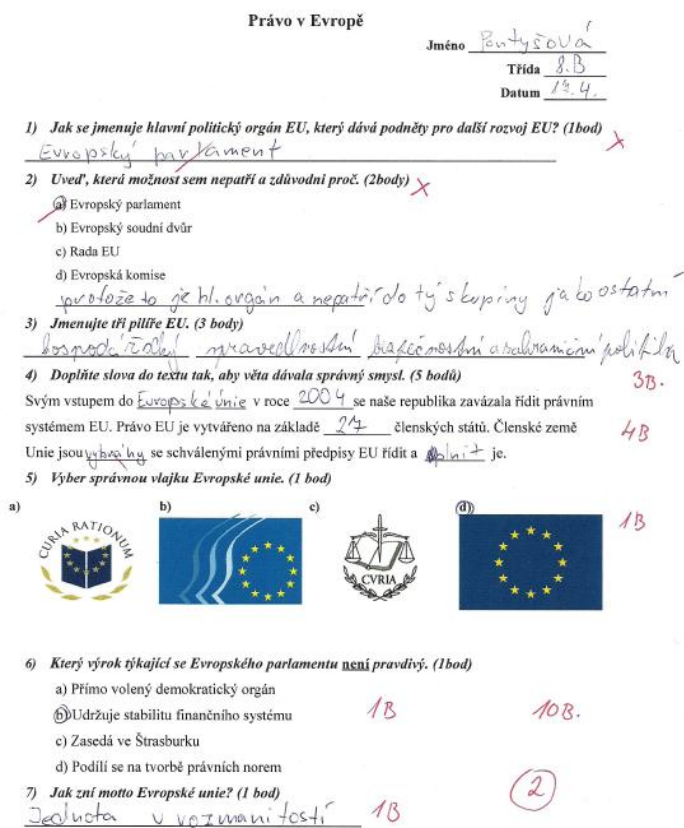 Právo v Evropě
Jméno Pontyšová
Třída 8.B
Datum 17.4.
1) Jak se jmenuje hlavní politický orgán EU, který dává podněty pro další rozvoj EU? (1bod)
Evropský parlament
2) Uveď, která možnost sem nepatří a zdůvodni proč. (2body)
a) Evropský parlament
b) Evropský soudní dvůr
c) Rada EU
d) Evropská komise
protože to je hl. orgán a nepatří do tý skupiny jako ostatní
3) Jmenujte tři pilíře EU. (3 body)
hospodářský spravedlnostní bezpečnostní a zahraniční politika
3B.
4) Doplňte slova do textu tak, aby věta dávala správný smysl. (5 bodů)
Svým vstupem do Evropské únie v roce 2004 se naše republika zavázala řídit právním
systémem EU. Právo EU je vytvářeno na základě 27 členských států. Členské země
4B
Unie jsou vybrány se schválenými právními předpisy EU řídit a plnit je.
5) Vyber správnou vlajku Evropské unie. (1 bod)
a) b) c) d)
1B
CURIA RATIONUM
CVRIA
6) Který výrok týkající se Evropského parlamentu není pravdivý. (1bod)
a) Přímo volený demokratický orgán
b) Udržuje stabilitu finančního systému 1B 10B.
c) Zasedá ve Štrasburku
d) Podílí se na tvorbě právních norem
2
7) Jak zní motto Evropské unie? (1 bod)
Jednota v rozmanitosti 1B